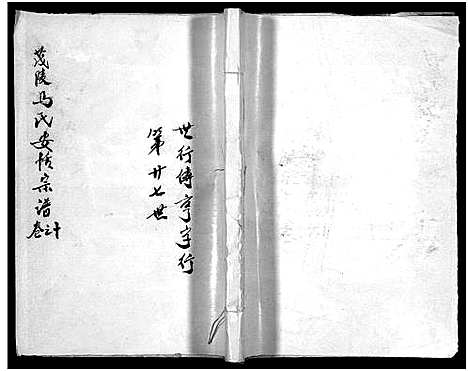 世行傳亨字行
第廿七世
茂陵马氏安恬宗谱
卷之十